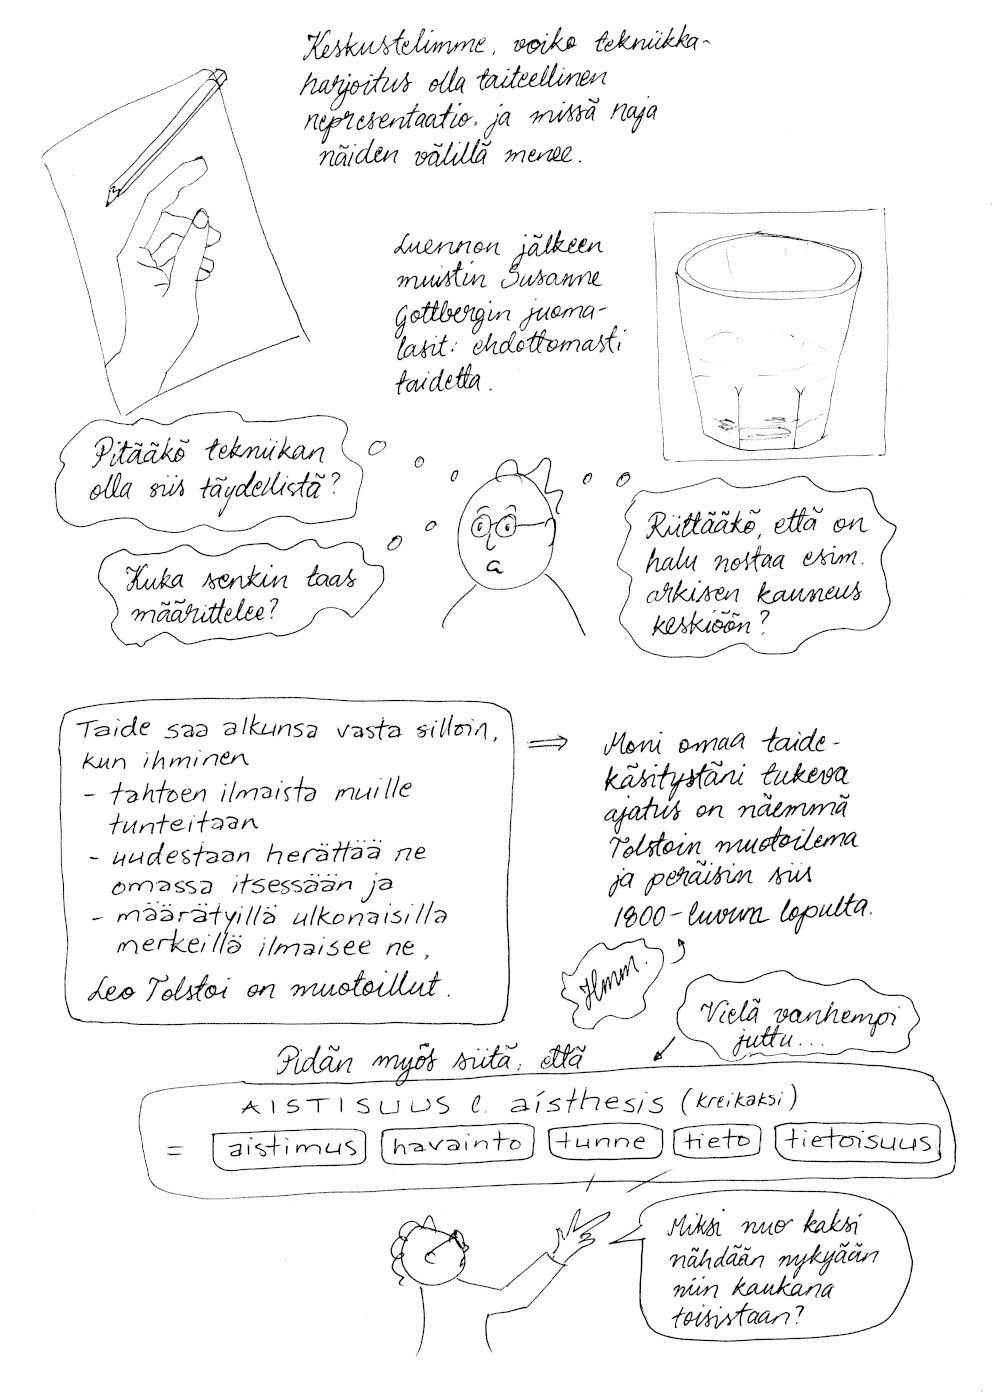 Keskustelimme, voiko tekniikka-
harjoitus olla taiteellinen
representaatio, ja missä raja
näiden välillä menee.
Luennon jälkeen
muistin Susanne
Gottbergin juoma-
lasit: ehdottomasti
taidetta.
Pitääkö tekniikan
olla siis täydellistä?
Kuka senkin taas
määrittelee?
Riittääkö, että on
halu nostaa esim.
arkisen kauneus
keskiöön?
Taide saa alkunsa vasta silloin,
kun ihminen
- tahtoen ilmaista muille
tunteitaan
- uudestaan herättää ne
omassa itsessään ja
- määrätyillä ulkonaisilla
merkeillä ilmaisee ne,
Leo Tolstoi on muotoillut.
⇒
Moni omaa taide-
käsitystäni tukeva
ajatus on näemmä
Tolstoin muotoilema
ja peräisin siis
1800-luvun lopulta.
Hmm.
Vielä vanhempi
juttu...
Pidän myös siitä, että
AISTISUUS e. aísthesis (kreikaksi)
= aistimus havainto tunne tieto tietoisuus
Miksi nuo kaksi
nähdään nykyään
niin kaukana
toisistaan?